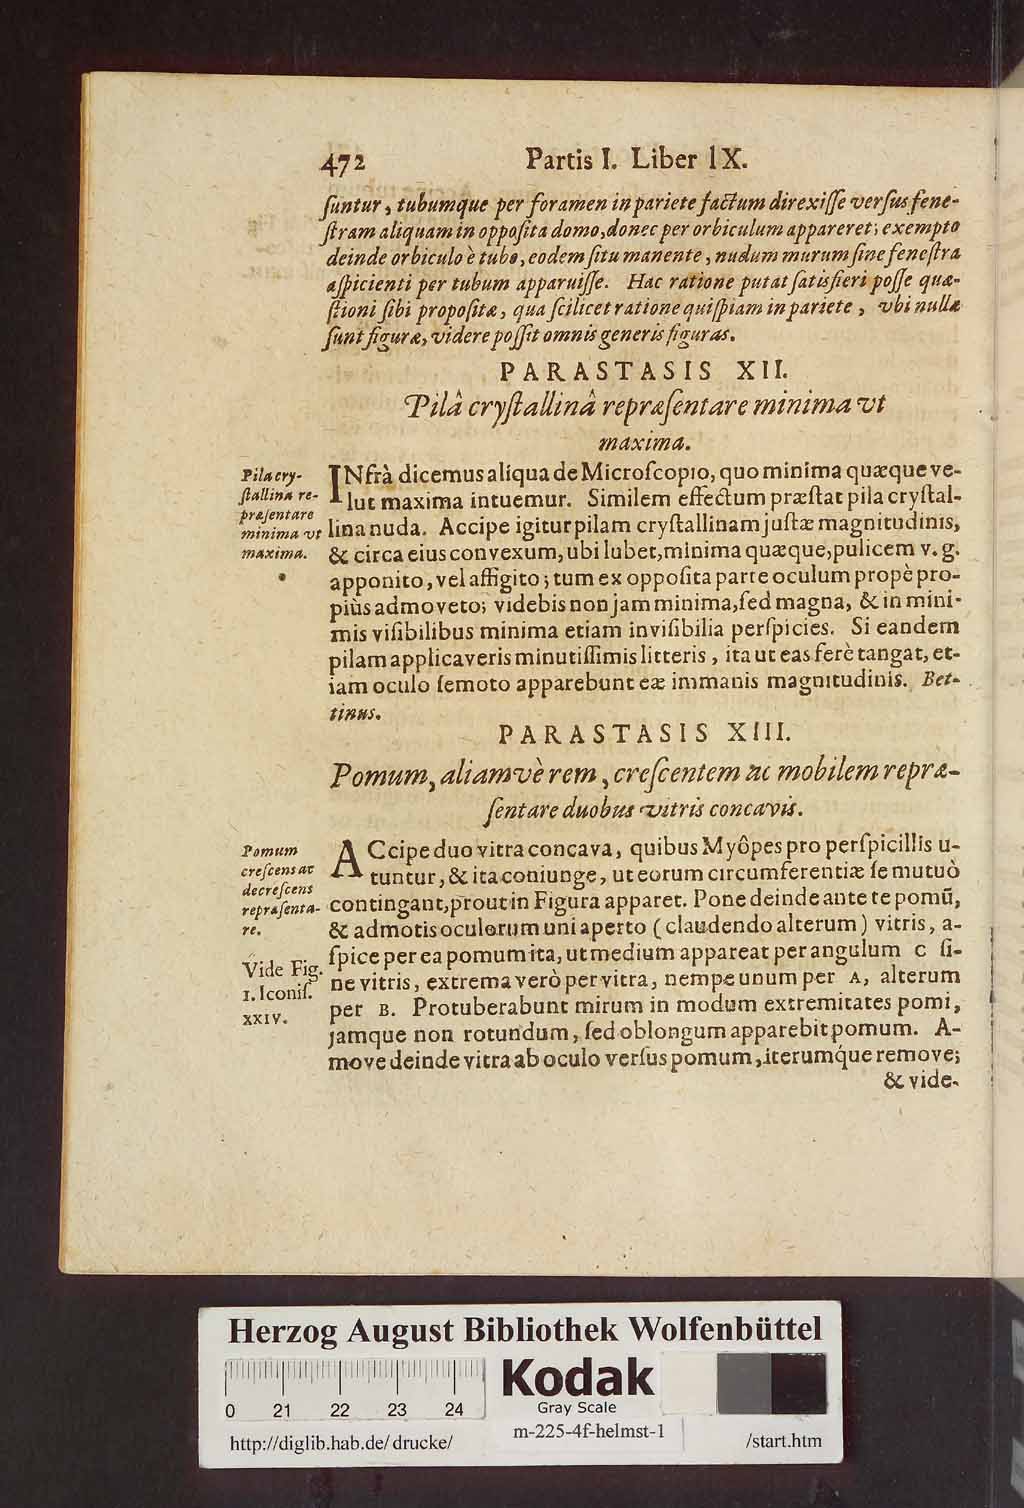 472 Partis I. Liber IX.
ſuntur, tubumque per foramen in pariete factum direxiſſe verſus fene-
ſtram aliquam in oppoſita domo, donec per orbiculum appareret; exempto
deinde orbiculo è tubo, eodem ſitu manente, nudum murum ſine feneſtra
aſpicienti per tubum apparuiſſe. Hac ratione putat ſatisfieri poſſe quæ-
ſtioni ſibi propoſitæ, qua ſcilicet ratione quiſpiam in pariete, vbi nullæ
ſunt figuræ, videre poſſit omnis generis figuras.
PARASTASIS XII.
Pilâ cryſtallinâ repræſentare minima vt
maxima.
Pila cry-
ſtallina re-
præſentare
minima vt
maxima.
INfrà dicemus aliqua de Microſcopio, quo minima quæque ve-
lut maxima intuemur. Similem effectum præſtat pila cryſtal-
lina nuda. Accipe igitur pilam cryſtallinam juſtæ magnitudinis,
& circa eius convexum, ubi lubet, minima quæque, pulicem v. g.
apponito, vel affigito; tum ex oppoſita parte oculum propè pro-
piùs admoveto; videbis non jam minima, ſed magna, & in mini-
mis viſibilibus minima etiam inviſibilia perſpicies. Si eandem
pilam applicaveris minutiſſimis litteris, ita ut eas ferè tangat, et-
iam oculo ſemoto apparebunt eæ immanis magnitudinis. Bet-
tinus.
PARASTASIS XIII.
Pomum, aliamvè rem, creſcentem ac mobilem repræ-
ſentare duobus vitris concavis.
Pomum
creſcens ac
decreſcens
repræſenta-
re.
Vide Fig.
1. Iconiſ.
XXIV.
ACcipe duo vitra concava, quibus Myôpes pro perſpicillis u-
tuntur, & ita coniunge, ut eorum circumferentiæ ſe mutuò
contingant, prout in Figura apparet. Pone deinde ante te pomū,
& admotis oculorum uni aperto (claudendo alterum) vitris, a-
ſpice per ea pomum ita, ut medium appareat per angulum C ſi-
ne vitris, extrema verò per vitra, nempe unum per A, alterum
per B. Protuberabunt mirum in modum extremitates pomi,
jamque non rotundum, ſed oblongum apparebit pomum. A-
move deinde vitra ab oculo verſus pomum, iterumq́ue remove;
& vide-
Herzog August Bibliothek Wolfenbüttel
0 21 22 23 24
Kodak
Gray Scale
http://diglib.hab.de/drucke/ m-225-4f-helmst-1 /start.htm